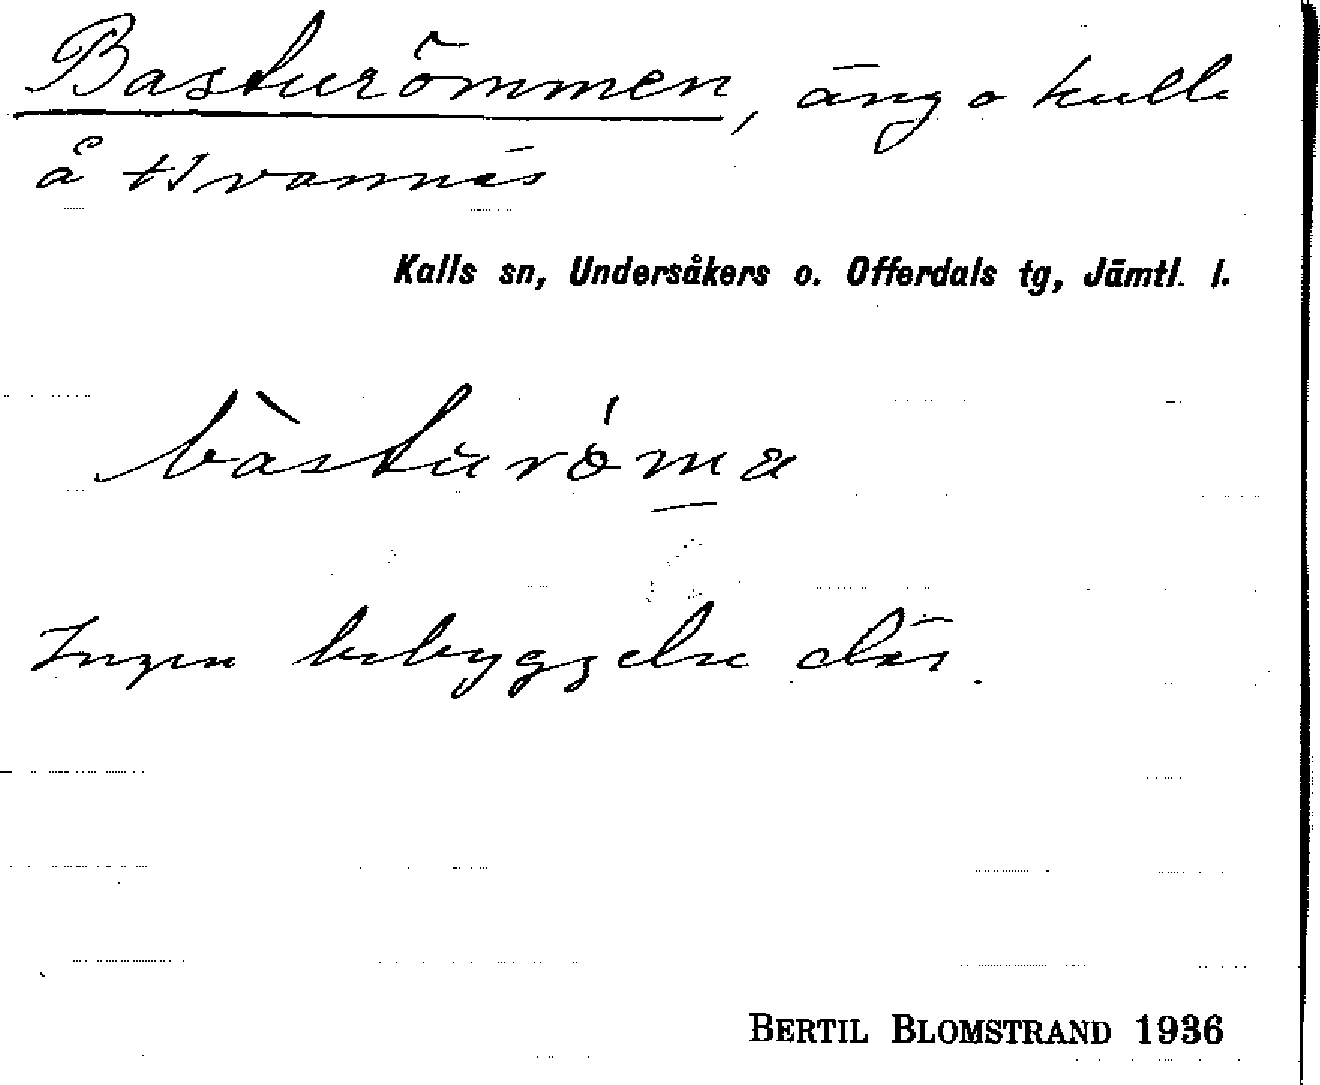 Basturömmen, äng o kulle
å Hvannäs
Kalls sn, Undersåkers o. Offerdals tg, Jämtl. l.
bàsturóma
Ingen bebyggelse där.
BERTIL BLOMSTRAND 1936